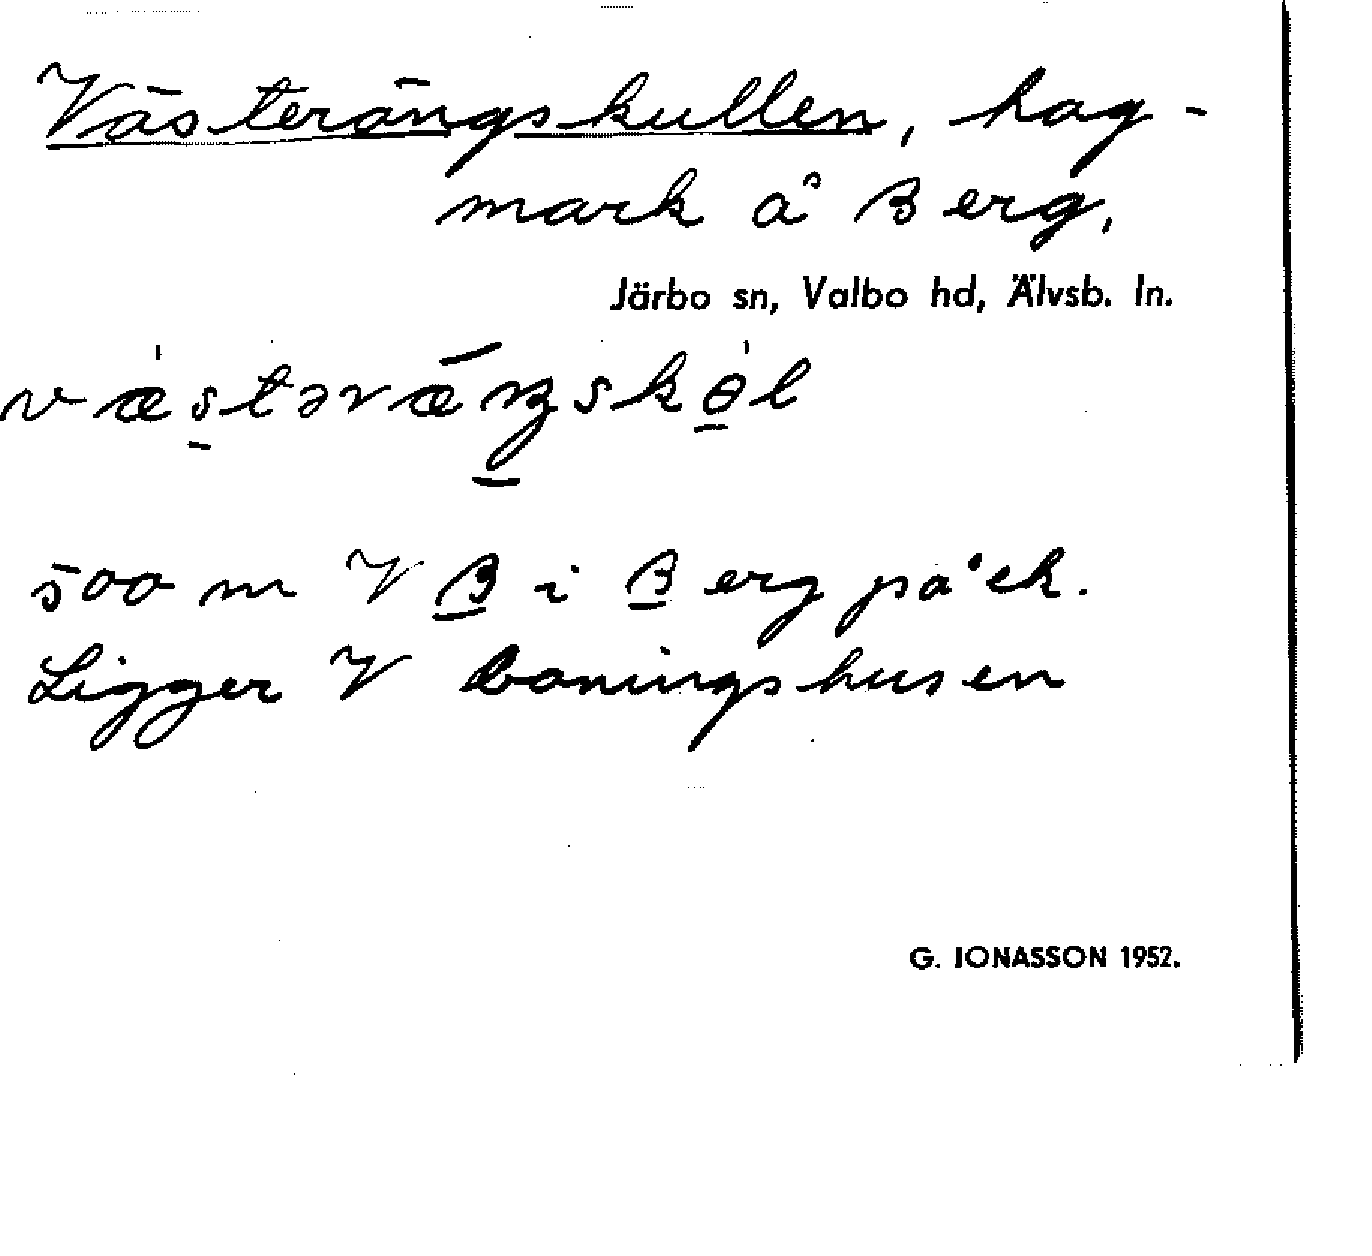 Västerängskullen, hag-
mark å Berg,
Järbo sn, Valbo hd, Älvsb. ln.
væstəræŋskɵl
500 m V B i Berg på ek.
Ligger V boningshusen
G. IONASSON 1952.